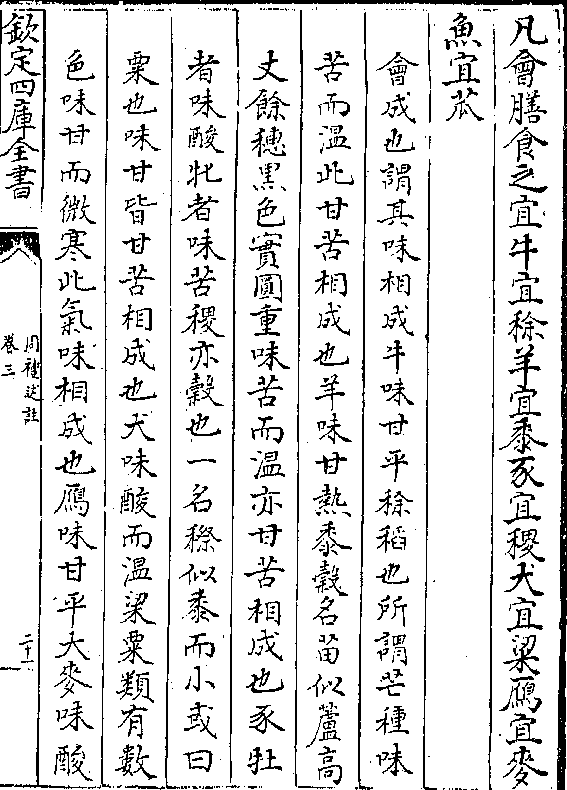 凡會膳食之宜牛宜稌羊宜黍豕宜稷犬宜粱鴈宜麥
魚宜苽
會成也謂其味相成牛味甘平稌稻也所謂芒種味
苦而溫此甘苦相成也羊味甘熱黍榖名苗似蘆高
丈餘穗黑色實圓重味苦而溫亦甘苦相成也豕牡
者味酸牝者味苦稷亦榖也一名穄似黍而小或曰
粟也味甘皆甘苦相成也犬味酸而溫粱粟類有數
色味甘而微寒此氣味相成也鴈味甘平大麥味酸
欽定四庫全書
周禮述註
卷三
二十一